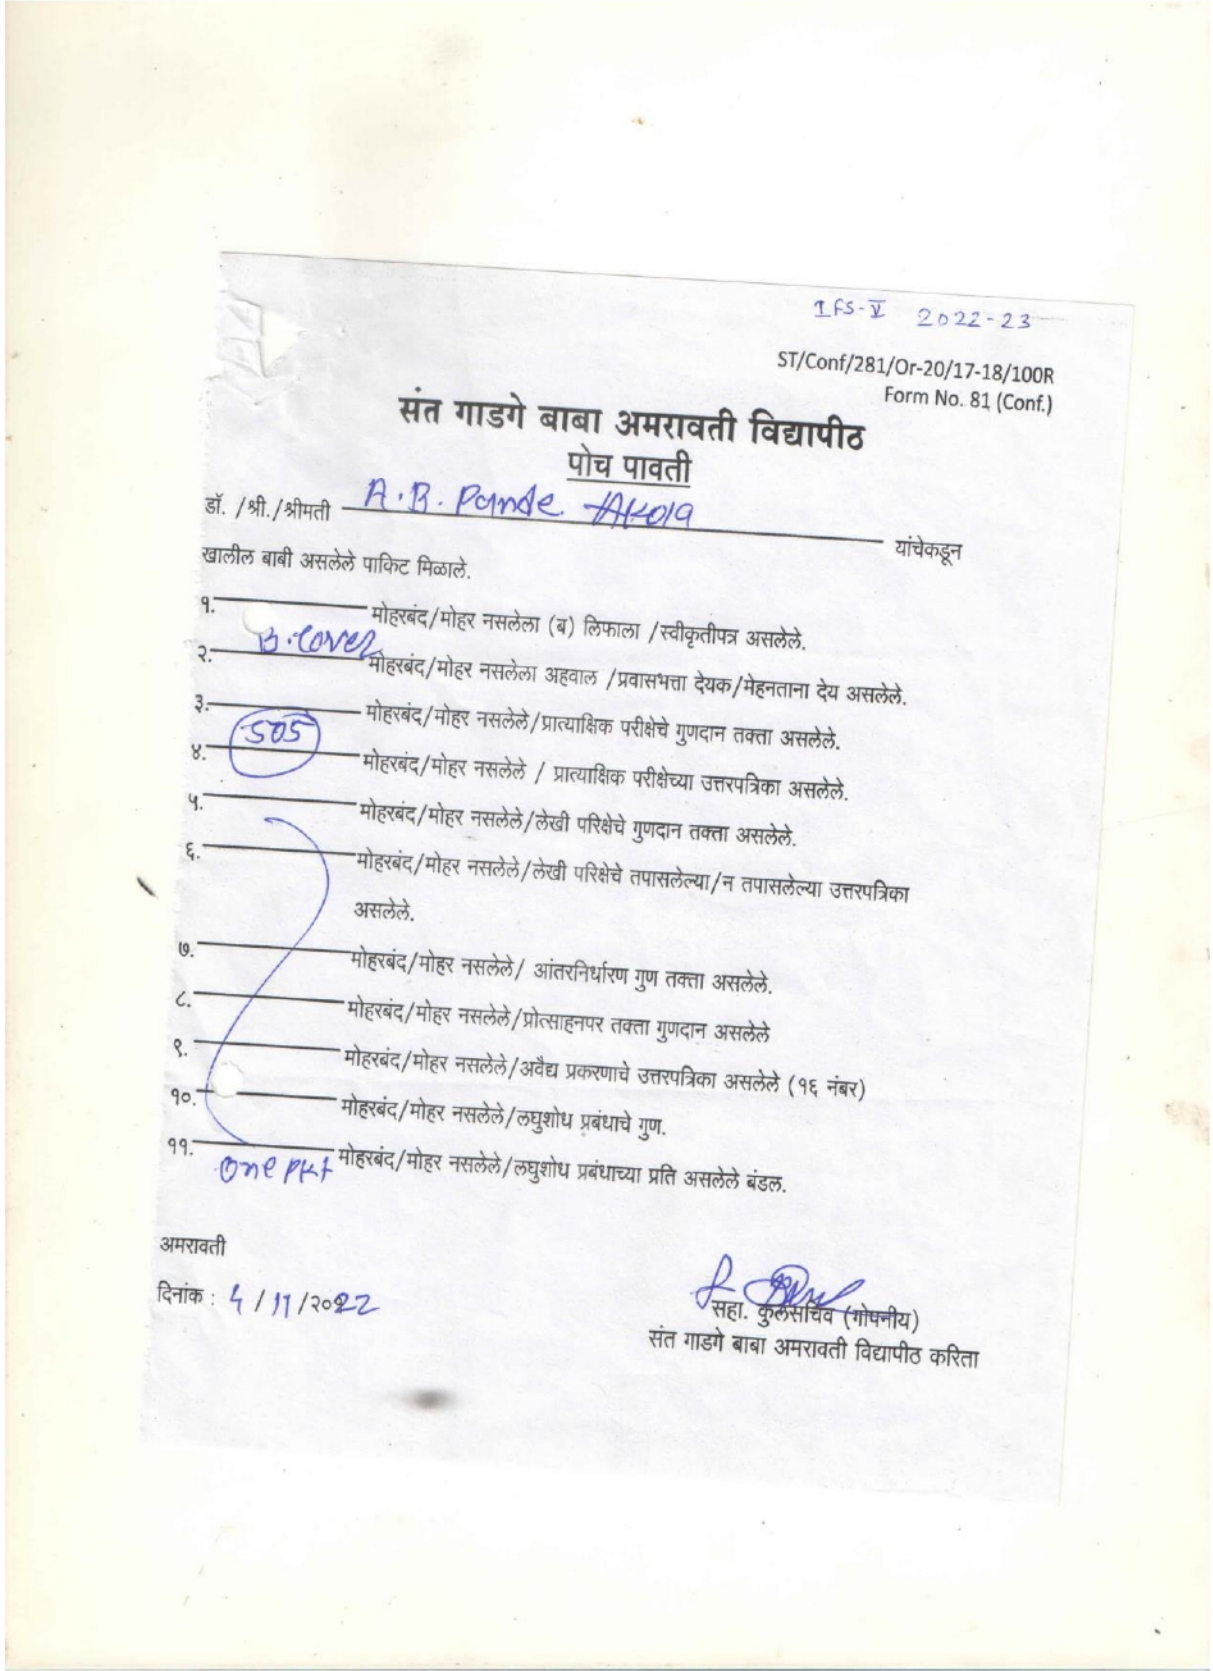 IFS-V 2022-23
ST/Conf/281/Or-20/17-18/100R
Form No. 81 (Conf.)
संत गाडगे बाबा अमरावती विद्यापीठ
पोच पावती
डॉ. /श्री./श्रीमती A.B. Pande Akola यांचेकडून
खालील बाबी असलेले पाकिट मिळाले.
१. मोहरबंद/मोहर नसलेला (ब) लिफाला /स्वीकृतीपत्र असलेले.
B.Cover
२. मोहरबंद/मोहर नसलेला अहवाल /प्रवासभत्ता देयक/मेहनताना देय असलेले.
३. मोहरबंद/मोहर नसलेले/प्रात्याक्षिक परीक्षेचे गुणदान तक्ता असलेले.
505
४. मोहरबंद/मोहर नसलेले / प्रात्याक्षिक परीक्षेच्या उत्तरपत्रिका असलेले.
५. मोहरबंद/मोहर नसलेले/लेखी परिक्षेचे गुणदान तक्ता असलेले.
६. मोहरबंद/मोहर नसलेले/लेखी परिक्षेचे तपासलेल्या/न तपासलेल्या उत्तरपत्रिका
असलेले.
७. मोहरबंद/मोहर नसलेले/ आंतरनिर्धारण गुण तक्ता असलेले.
८. मोहरबंद/मोहर नसलेले/प्रोत्साहनपर तक्ता गुणदान असलेले
९. मोहरबंद/मोहर नसलेले/अवैद्य प्रकरणाचे उत्तरपत्रिका असलेले (१६ नंबर)
१०. मोहरबंद/मोहर नसलेले/लघुशोध प्रबंधाचे गुण.
११. मोहरबंद/मोहर नसलेले/लघुशोध प्रबंधाच्या प्रति असलेले बंडल.
One Pkt
अमरावती
दिनांक : 4/11/२०22
सहा. कुलसचिव (गोपनीय)
संत गाडगे बाबा अमरावती विद्यापीठ करिता